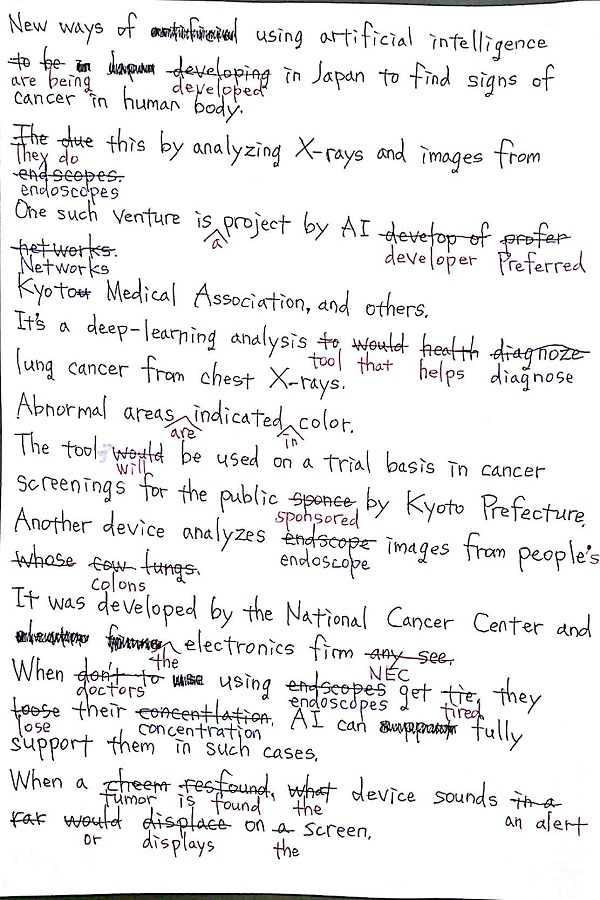 New ways of using artificial intelligence
to be in developing in Japan to find signs of
are being developed
cancer in human body.
The due this by analyzing X-rays and images from
They do
endscopes.
endoscopes
One such venture is project by AI develop of profer
a developer Preferred
networks.
Networks
Kyotou Medical Association, and others.
It's a deep-learning analysis to would health diagnoze
tool that helps diagnose
lung cancer from chest X-rays.
Abnormal areas indicated color.
are in
The tool would be used on a trial basis in cancer
will
screenings for the public sponce by Kyoto Prefecture.
sponsored
Another device analyzes endscope images from people's
endoscope
whose cow lungs.
colons
It was developed by the National Cancer Center and
electronics firm any see.
the NEC
When don't to use using endscopes get tie, they
doctors endoscopes tired
loose their concentlation. AI can support fully
lose concentration
support them in such cases.
When a cheem resfound, what device sounds in a
tumor is found the an alert
far would displace on a screen.
or displays the